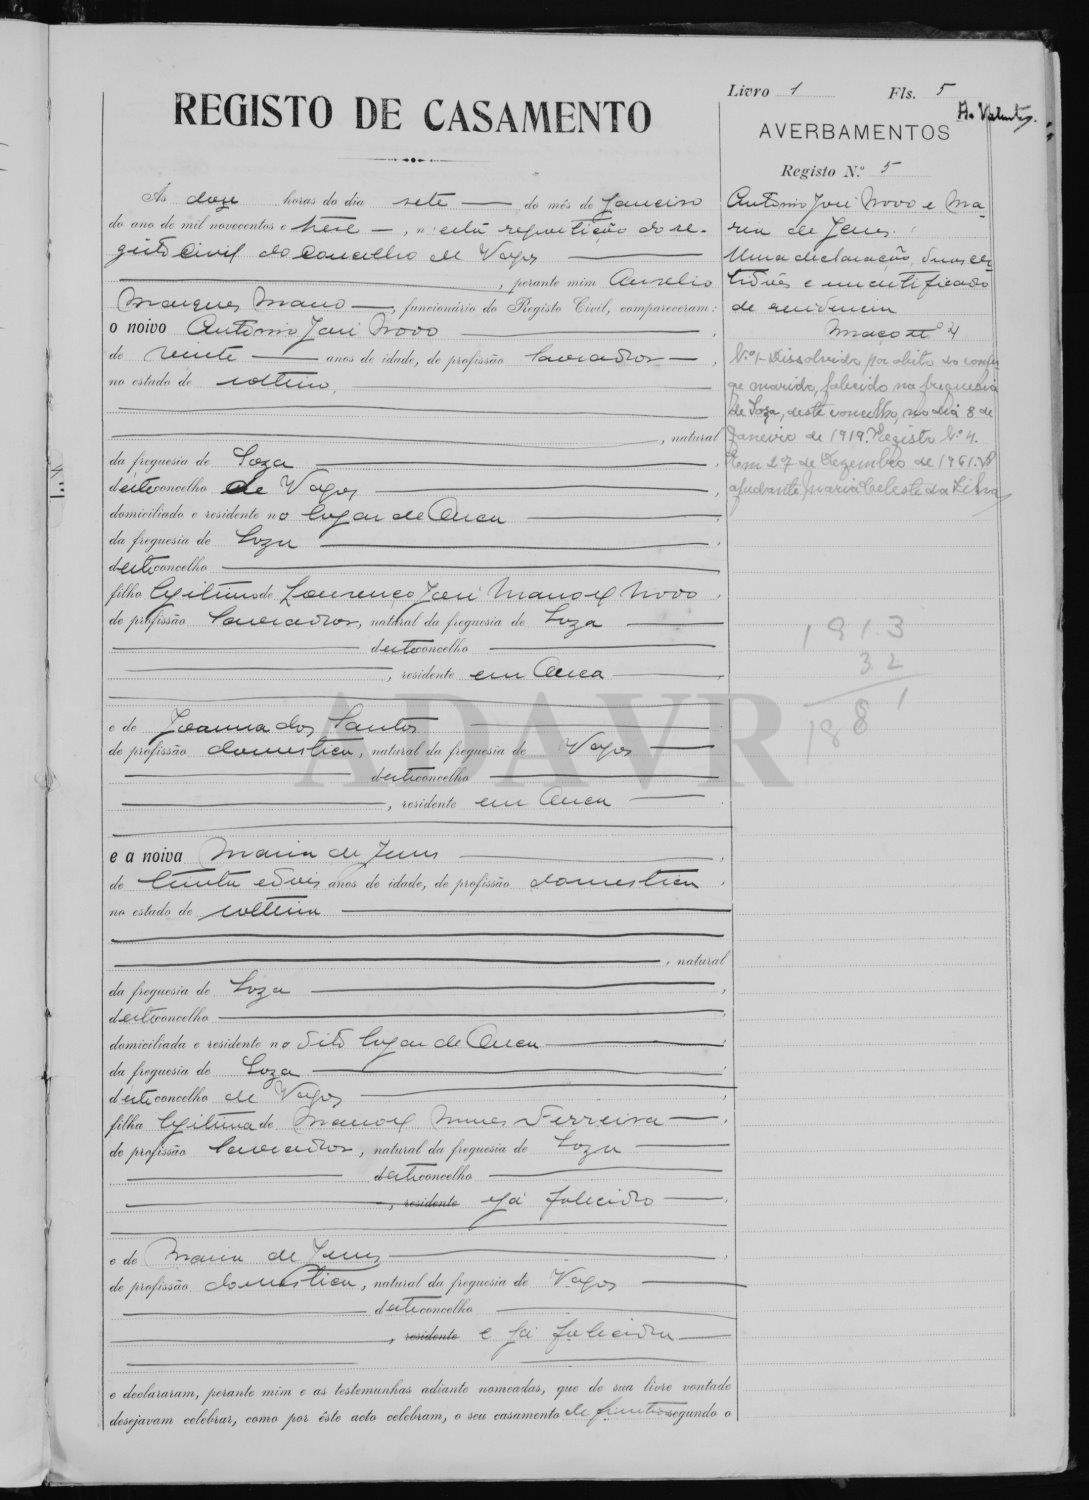 Livro 1 Fls. 5
REGISTO DE CASAMENTO
AVERBAMENTOS
Registo N.º 5
Ás doze horas do dia sete do mês de Janeiro
do ano de mil novecentos e treze, n'esta repartição do re-
gisto civil do concelho de Vagos
, perante mim Aurelio
Marques Mano, funcionário do Registo Civil, compareceram:
o noivo Antonio José Novo
de vinte anos de idade, de profissão lavrador,
no estado de solteiro,
, natural
da freguesia de Soza
deste concelho de Vagos,
domiciliado e residente no lugar de Ouca,
da freguesia de Soza,
deste concelho
filho legitimo de Lourenço José Manoel Novo,
de profissão lavrador, natural da freguesia de Soza
deste concelho
, residente em Ouca,
e de Joanna dos Santos
de profissão domestica, natural da freguesia de Vagos
deste concelho
, residente em Ouca
e a noiva Maria de Jesus,
de trinta e dois anos de idade, de profissão domestica,
no estado de solteira
, natural
da freguesia de Soza,
deste concelho
domiciliada e residente no dito lugar de Ouca,
da freguesia de Soza,
deste concelho de Vagos,
filha legitima de Manoel Nunes Ferreira,
de profissão lavrador, natural da freguesia de Soza
deste concelho
, residente e já falecido,
e de Maria de Jesus,
de profissão domestica, natural da freguesia de Vagos
deste concelho
, residente e já falecida
e declararam, perante mim e as testemunhas adiante nomeadas, que de sua livre vontade
desejavam celebrar, como por êste acto celebram, o seu casamento definitivo segundo o
Antonio José Novo e Ma-
ria de Jesus.
Uma declaração, duas cer-
tidões e um certificado
de residencia
Maço nº 4
N.º 1 - Dissolvido por obito do conju-
ge marido, falecido na freguesia
de Soza, deste concelho, no dia 8 de
Janeiro de 1919. Registo N.º 4.
Em 27 de Dezembro de 1961. A
ajudante Maria Celeste da Silva
1913
32
1881
ADAVR